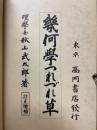 理學士秋山武太郎著
幾何學つれづれ草
訂正増補
東京 高岡書店發行